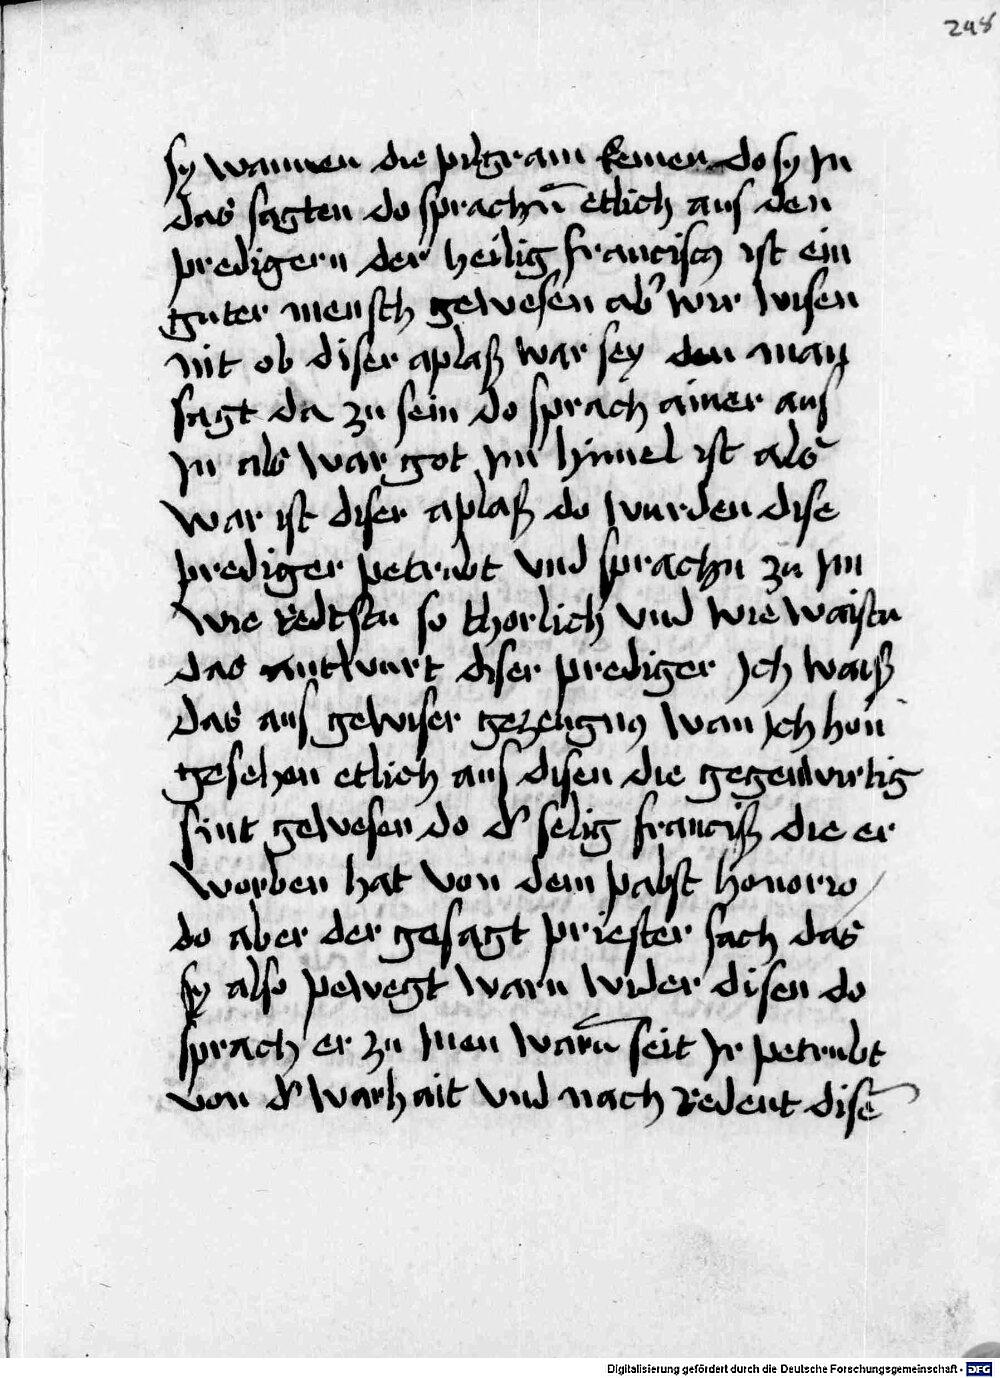 248
sy wannen die pilgram kemen do sy jn
das sagten do sprachn̄ etlich aus den
predigern der heilig franciscus ist ein
guter mensch gewesen ab' wir wisen
nit ob diser aplaß war sey den man
sagt da zu sein do sprach ainer aus
jn als war got jm himel ist als
war ist diser aplaß do wurden dise
prediger petrubt und sprachn zu jm
wie redtstu so thorlich und wie waistu
das antwurt diser prediger jch waiß
das aus gewiser gezeugnus wan jch hon
gesehen etlich aus disen die gegenwirtig
sint gewesen do d' selig franciß die er
worben hat von dem pabst honorio /
do aber der gesagt priester sach das
sy also pewegt warn wider disen do
sprach er zu jnen warū seit jr petrubt
von d' warhait und nach redent disē
Digitalisierung gefördert durch die Deutsche Forschungsgemeinschaft - DFG